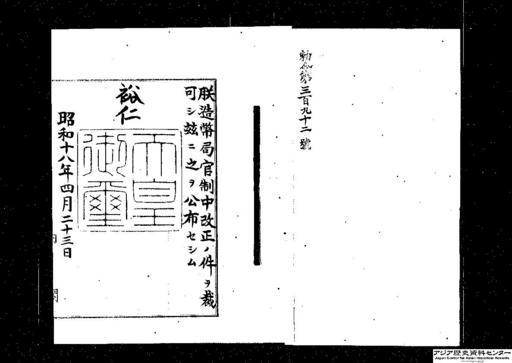 勅令第三百九十二號
朕造幣局官制中改正ノ件ヲ裁
可シ玆ニ之ヲ公布セシム
裕仁
天皇御璽
昭和十八年四月二十三日
アジア歴史資料センター
Japan Center for Asian Historical Records